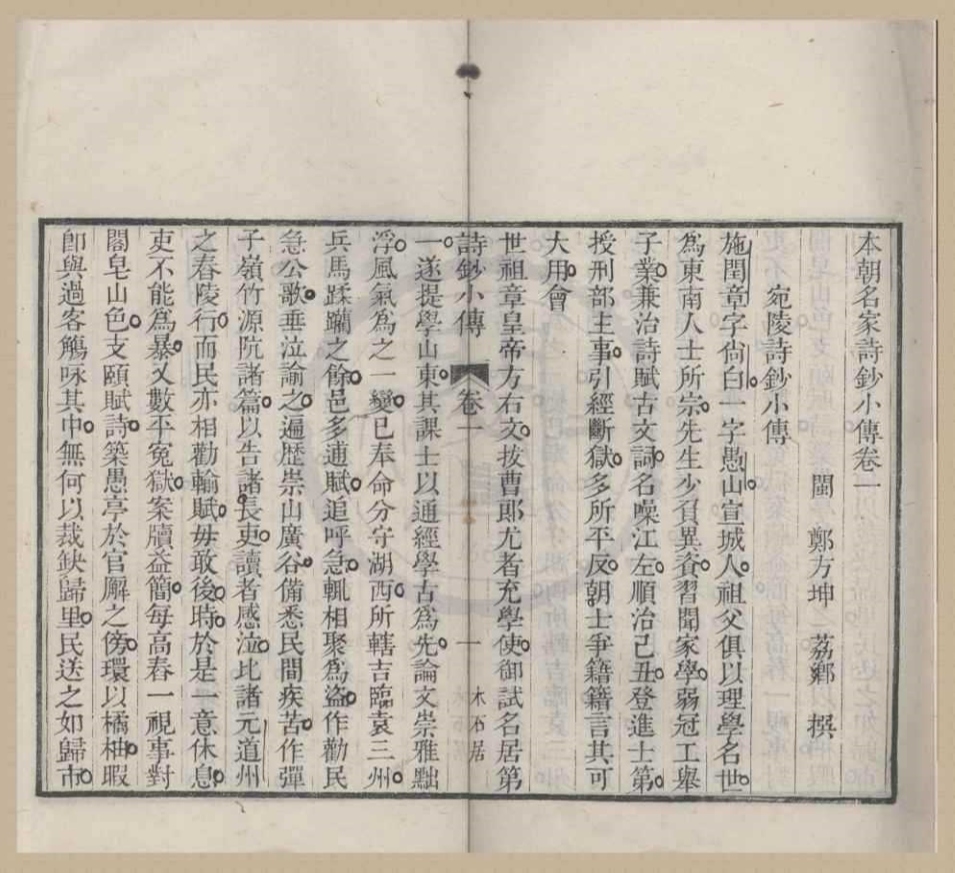 本朝名家詩鈔小傳卷一
閩 鄭方坤 荔鄉 撰
宛陵詩鈔小傳
施閏章字尙白一字愚山宣城人祖父俱以理學名世
爲東南人士所宗先生少負異姿習聞家學弱冠工舉
子業兼治詩賦古文詞名噪江左順治己丑登進士第
授刑部主事引經斷獄多所平反朝士爭籍籍言其可
大用會
世祖章皇帝方右文拔曹郎尤者充學使御試名居第
詩鈔小傳 卷一 一 木石居
一遂提學山東其課士以通經學古爲先論文崇雅黜
浮風氣爲之一變已奉命分守湖西所轄吉臨袁三州
兵馬蹂躪之餘邑多逋賦追呼急輒相聚爲盜作勸民
急公歌垂泣諭之遍歷崇山廣谷備悉民間疾苦作彈
子嶺竹源阬諸篇以告諸長吏讀者感泣比諸元道州
之舂陵行而民亦相勸輸賦毋敢後時於是一意休息
吏不能爲暴又數平寃獄案牘益簡每高舂一視事對
閤皂山色支頤賦詩築愚亭於官廨之傍環以橘柚暇
卽與過客觴咏其中無何以裁缺歸里民送之如歸市